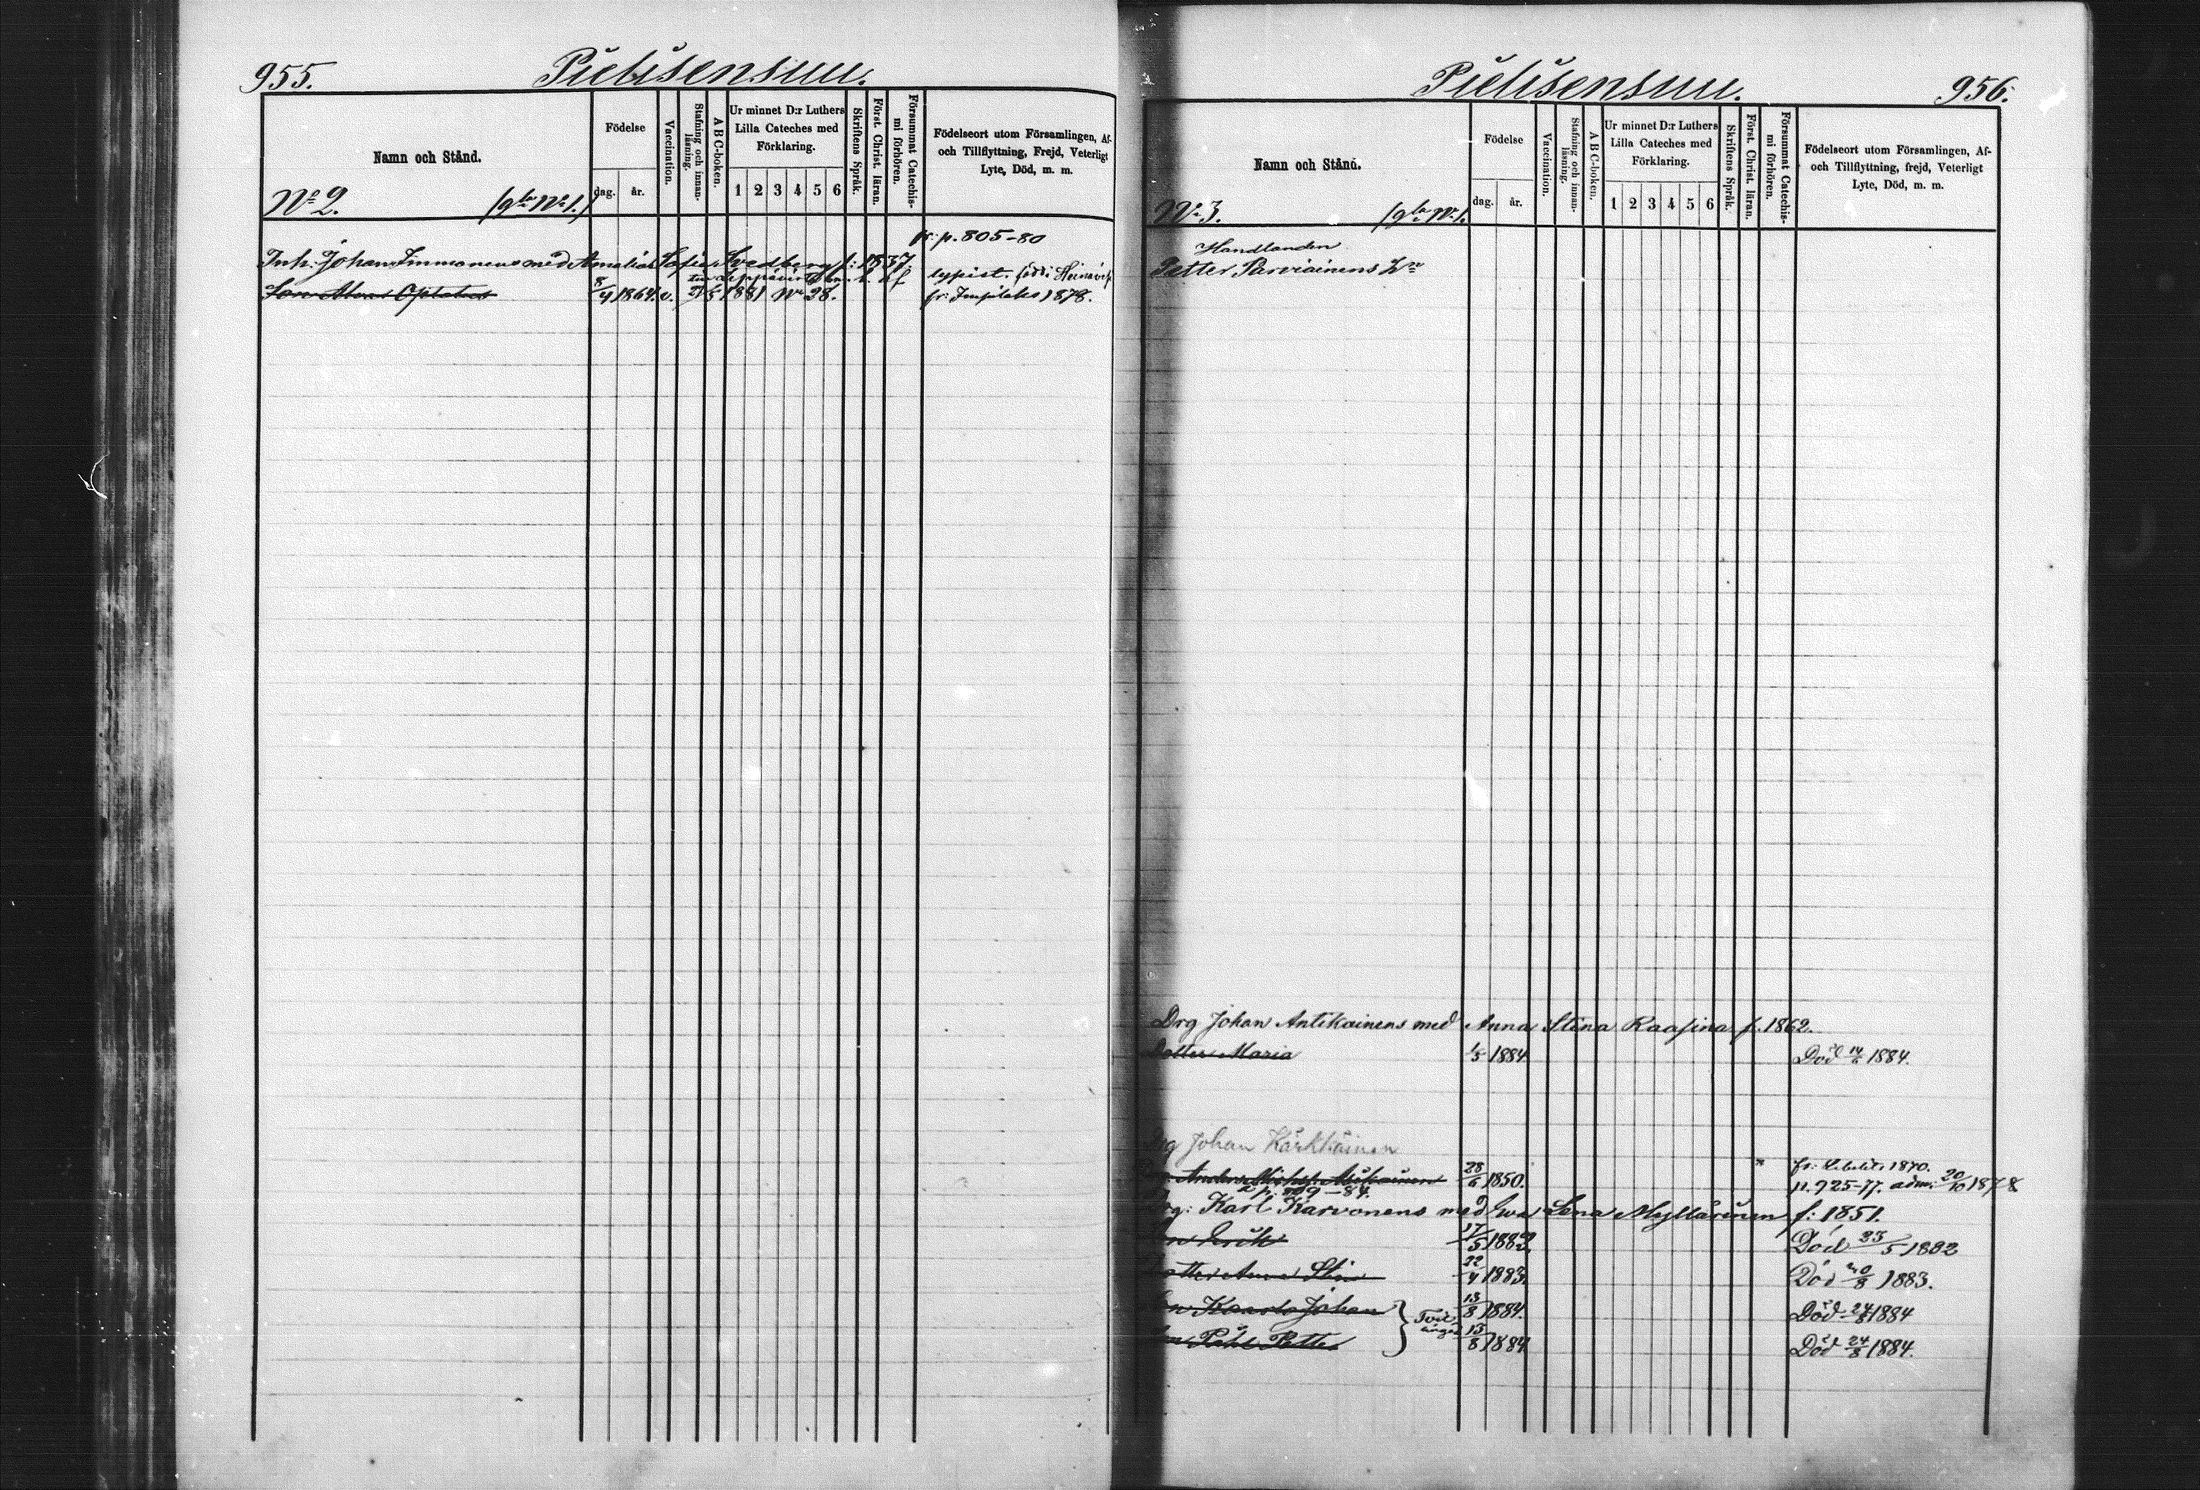 955.
Pielisensuu.
Namn och Stånd.
Födelse
dag.
år.
Vaccination.
Stafning och innanläsning.
A B C-boken.
Ur minnet D:r Luthers
Lilla Cateches med
Förklaring.
1 2 3 4 5 6
Skriftens Språk.
Först. Christ. läran.
Försummat Catechismi förhören.
Födelseort utom Församlingen, Af-
och Tillflyttning, Frejd, Veterligt
Lyte, Död, m. m.
No 2. No 1.
p. 805-80
Inh. Johan Immonens med Amalia Sofia Svedberg f: 1837
typist. född i Heinäves
Son 8/4 1864. v. 1881 No 28. fr: Impilaks 1878.
Pielisensuu.
956.
Namn och Stånd.
Födelse
dag.
år.
Vaccination.
Stafning och innanläsning.
A B C-boken.
Ur minnet D:r Luthers
Lilla Cateches med
Förklaring.
1 2 3 4 5 6
Skriftens Språk.
Först. Christ. läran.
Försummat Catechismi förhören.
Födelseort utom Församlingen, Af-
och Tillflyttning, frejd, Veterligt
Lyte, Död, m. m.
No 3. No 1.
Handlanden
Petter Parviainens
Drg Johan Antikainens med Anna Stina Raasina f. 1862.
Dotter Maria 1/5 1884 Död 14/6 1884.
Drg Johan Kärkkäinen
fr: Libelits 1870.
Anders Mich:s Asikainen 28/6 1850. p. 925-77. adm: 20/10 1878
Drg: Karl Karvonens med Eva Lena Myllärinen f: 1851.
Son Erik 17/5 1882 Död 23/5 1882
Dotter Anna Stina 22/4 1883 Död 20/8 1883.
Son Kaarlo Johan 13/8 1884. Död 24/8 1884
Tvillingar
Son Påhl Petter 13/8 1884 Död 24/8 1884.